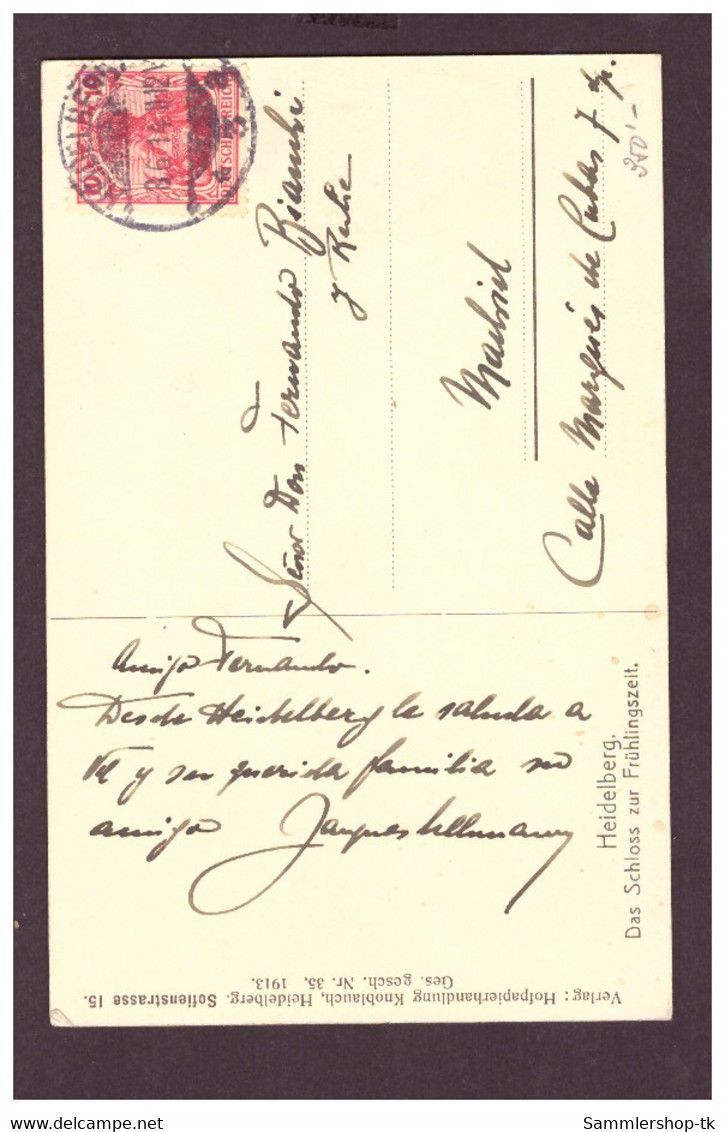 DEUTSCHES REICH
10
HEIDELBERG
8.6.14
Señor Don Fernando Bianchi
y
Madrid
Calle Marqués de Cubas 7
350'-
Amigo Fernando.
Desde Heidelberg le saluda a
Vd y su querida familia su
amigo Jacques Ullmann
Heidelberg.
Das Schloss zur Frühlingszeit.
Verlag: Hofpapierhandlung Knoblauch, Heidelberg. Sofienstrasse 15.
Ges. gesch. Nr. 35, 1913.
delcampe.net
Sammlershop-tk